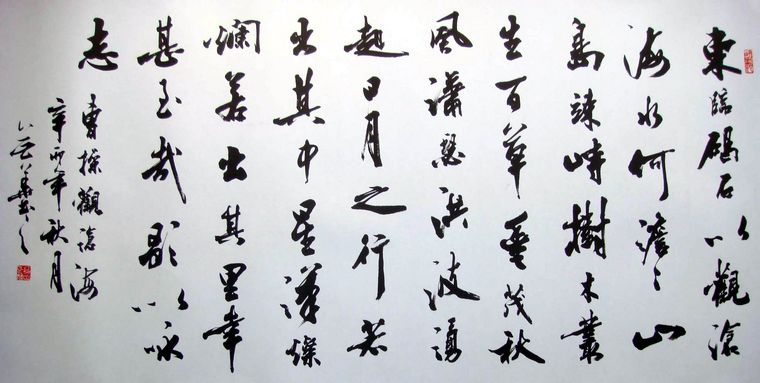 東臨碣石以觀滄
海水何澹々山
島竦峙樹木叢
生百草豐茂秋
風瀟瑟洪波湧
起日月之行若
出其中星漢燦
爛若出其里幸
甚至哉歌以咏
志
曹操觀滄海
辛卯年秋月